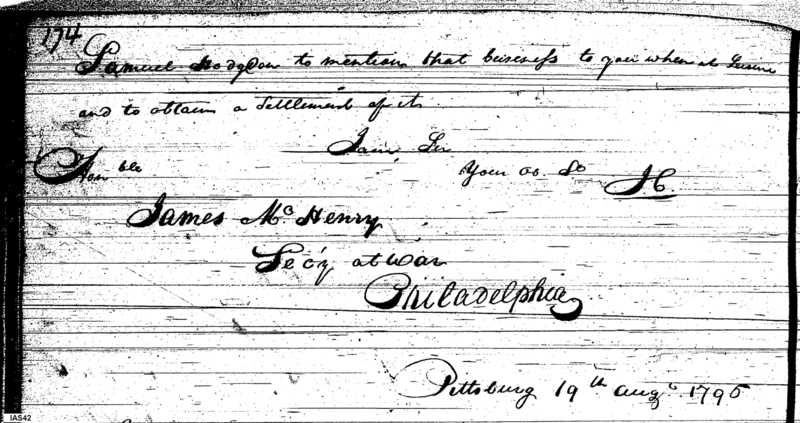 174
Samuel Hodgdon to mention that business to you when at Leisure
and to obtain a Settlement of it
I am Sir
Honble
Your ob. St
James Mc Henry
Secy at War
Philadelphia
Pittsburg 19th augt 1795
IAS42